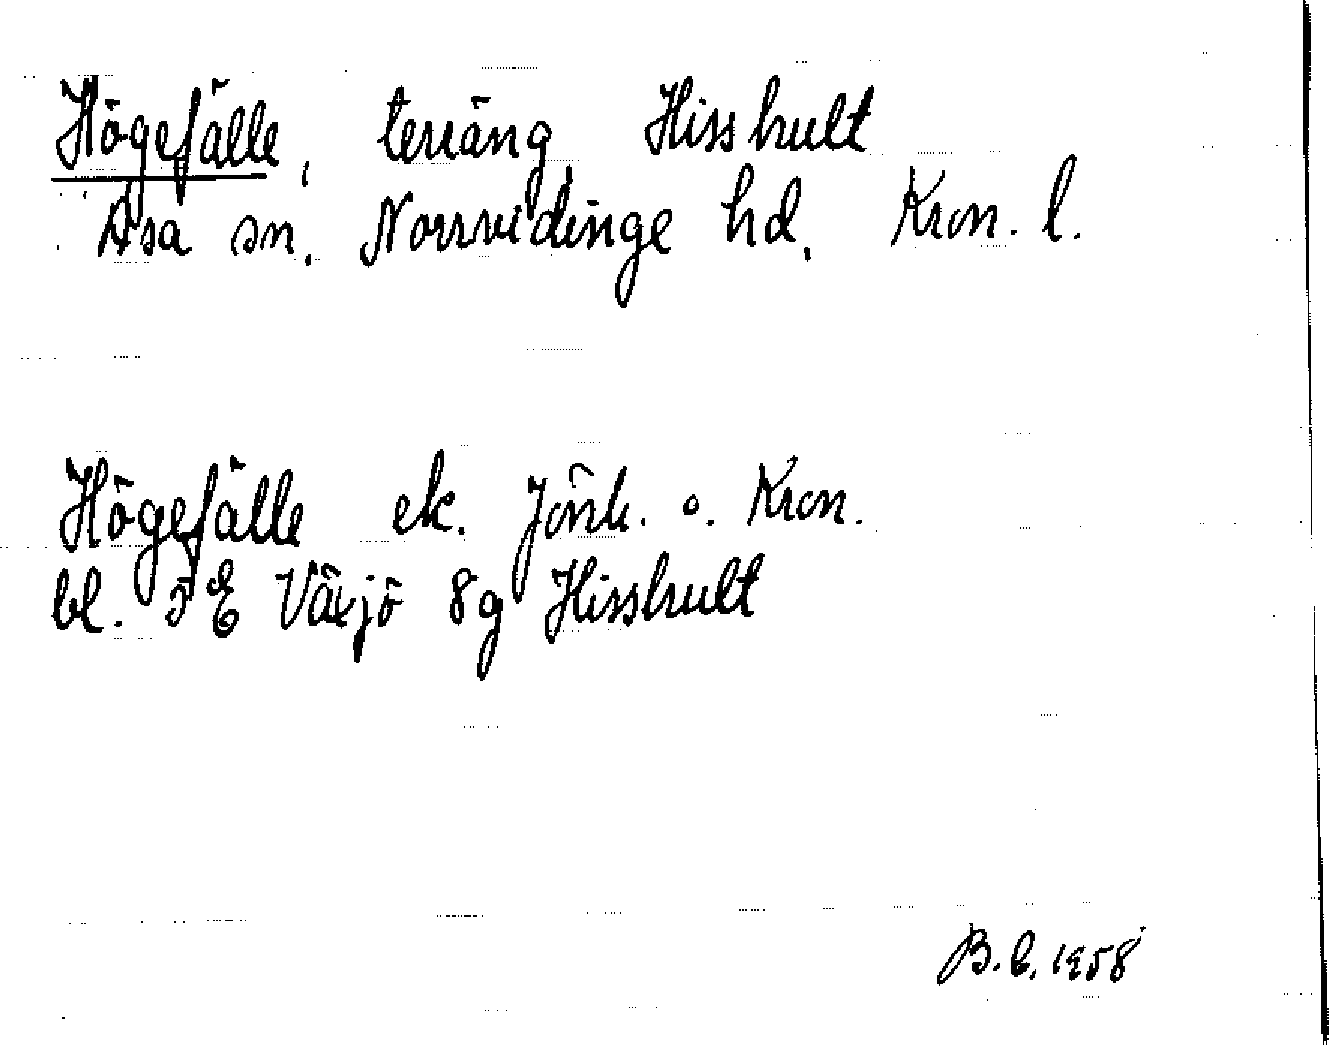 Högefälle, terräng Hisshult
Asa sn. Norrvidinge hd. Kron. l.
Högefälle ek. Jönk. o. Kron.
bl. 5E Växjö 8g Hisshult
B. E. 1958